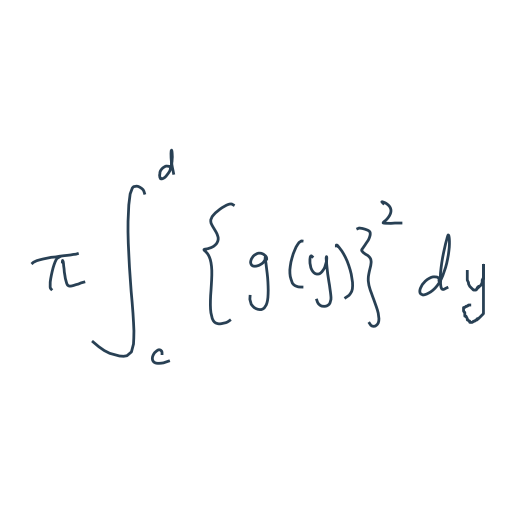 π ∫_c^d {g(y)}^2 dy